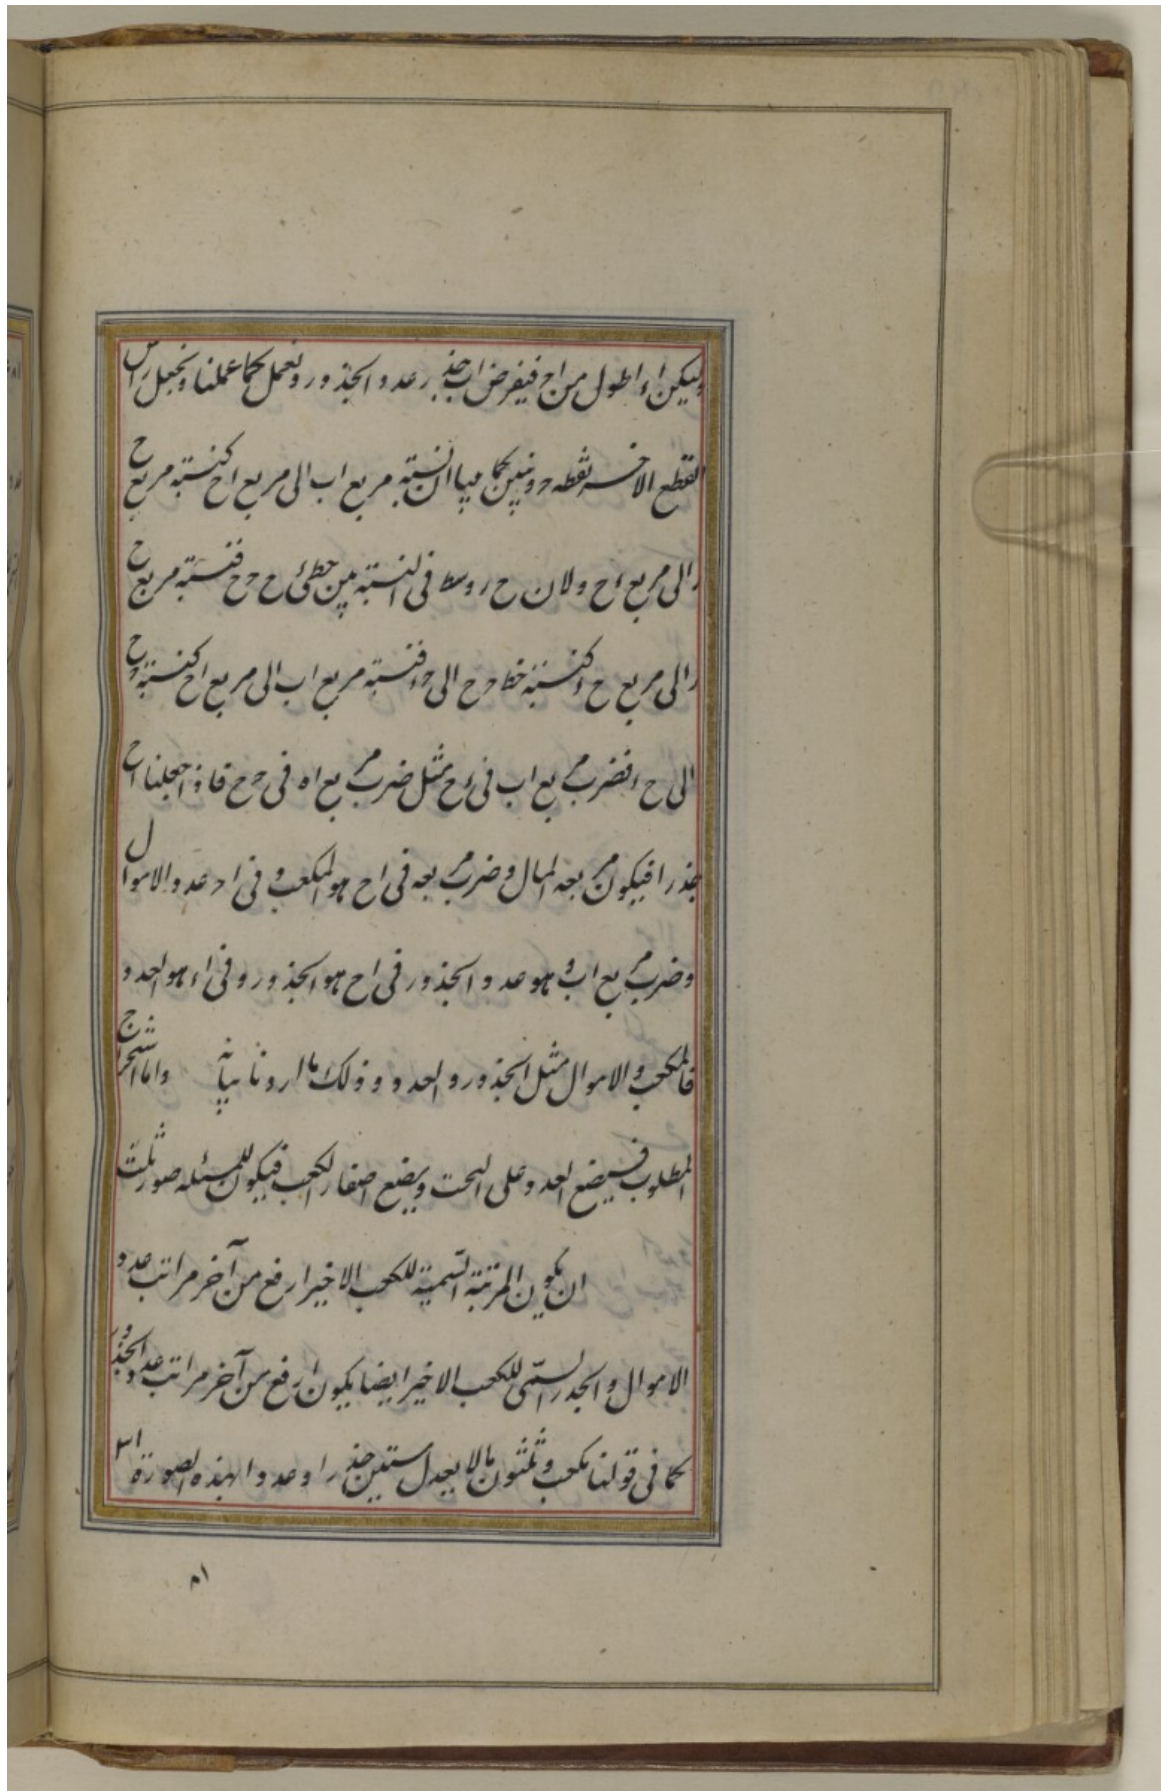 وليكن اء اطول من اح فيفرض اب جذر عدد الجذور ونعمل كما عملنا ونجعل راس
القطع الاخر نقطه د ونبين كما بينا ان نسبة مربع اب الى مربع اح كنسبة مربع ح
ر الى مربع ء ح ولان ح ر وسط فى النسبة بين خطى ء ح ح فنسبة مربع ح
ر الى مربع ح ء كنسبة خط ح ح الى ح ء فنسبة مربع اب الى مربع اح كنسبة ح ح
الى ح ء فضرب مربع اب فى ء ح مثل ضرب مربع اه فى ح ح فاذا جعلنا اح
جذرا فيكون مربعه المال وضرب مربعه فى اح هو المكعب و فى ا ح عدد الاموال
وضرب مربع اب و هو عدد الجذور فى اح هو الجذور و فى اء هو العدد
فالمكعب والاموال مثل الجذور والعدد و ذلك ما اردنا بيانه واما استخراج
المطلوب فيضع العدد على التخت ويضع اصفار الكعب فيكون للمسئله صور ثلث
ان يكون المرتبة السمية للكعب الاخير ارفع من آخر مراتب عدد
الاموال والجذر السمى للكعب الاخير ايضا يكون ارفع من آخر مراتب عدد الجذور
كما فى قولنا مكعب و ثلثون مالا يعدل ستين جذرا وعددا بهذه الصورة ٣١
٨١